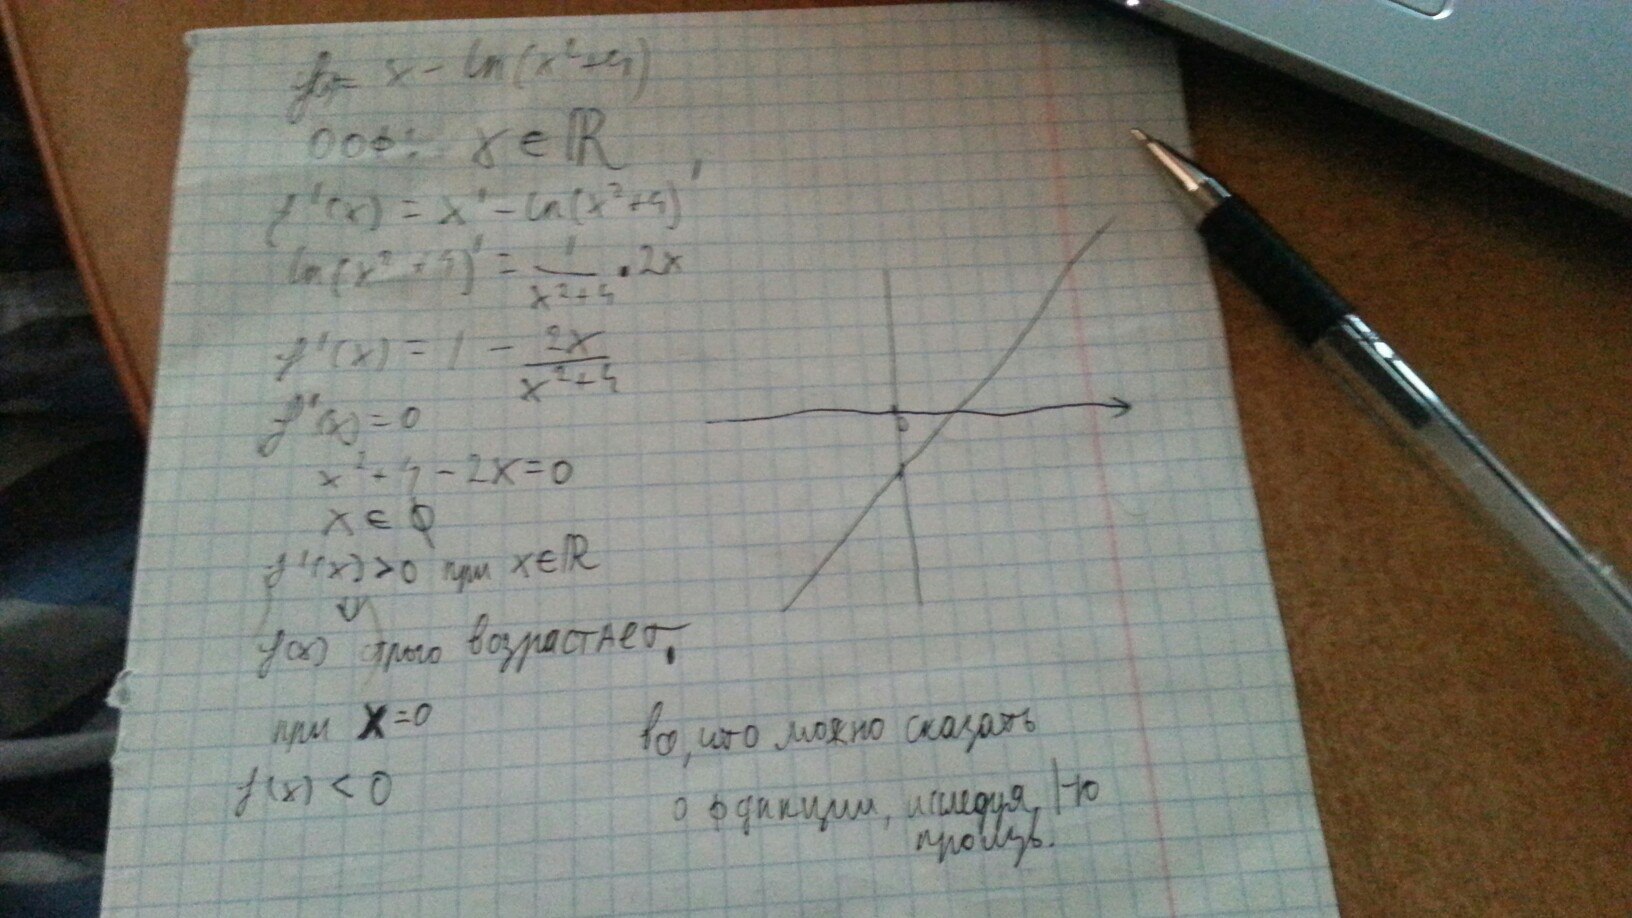 f(x) = x - ln(x²+4)
ООФ: x ∈ ℝ
f'(x) = x' - ln(x²+4)'
ln(x²+4)' = 1/(x²+4) · 2x
f'(x) = 1 - 2x/(x²+4)
f'(x) = 0
x²+4-2x=0
x ∈ ∅
f'(x) > 0 при x∈ℝ
f(x) строго возрастает.
при x=0
f(x) < 0
0
во, что можно сказать
о функции, исследуя 1-ю
произв.